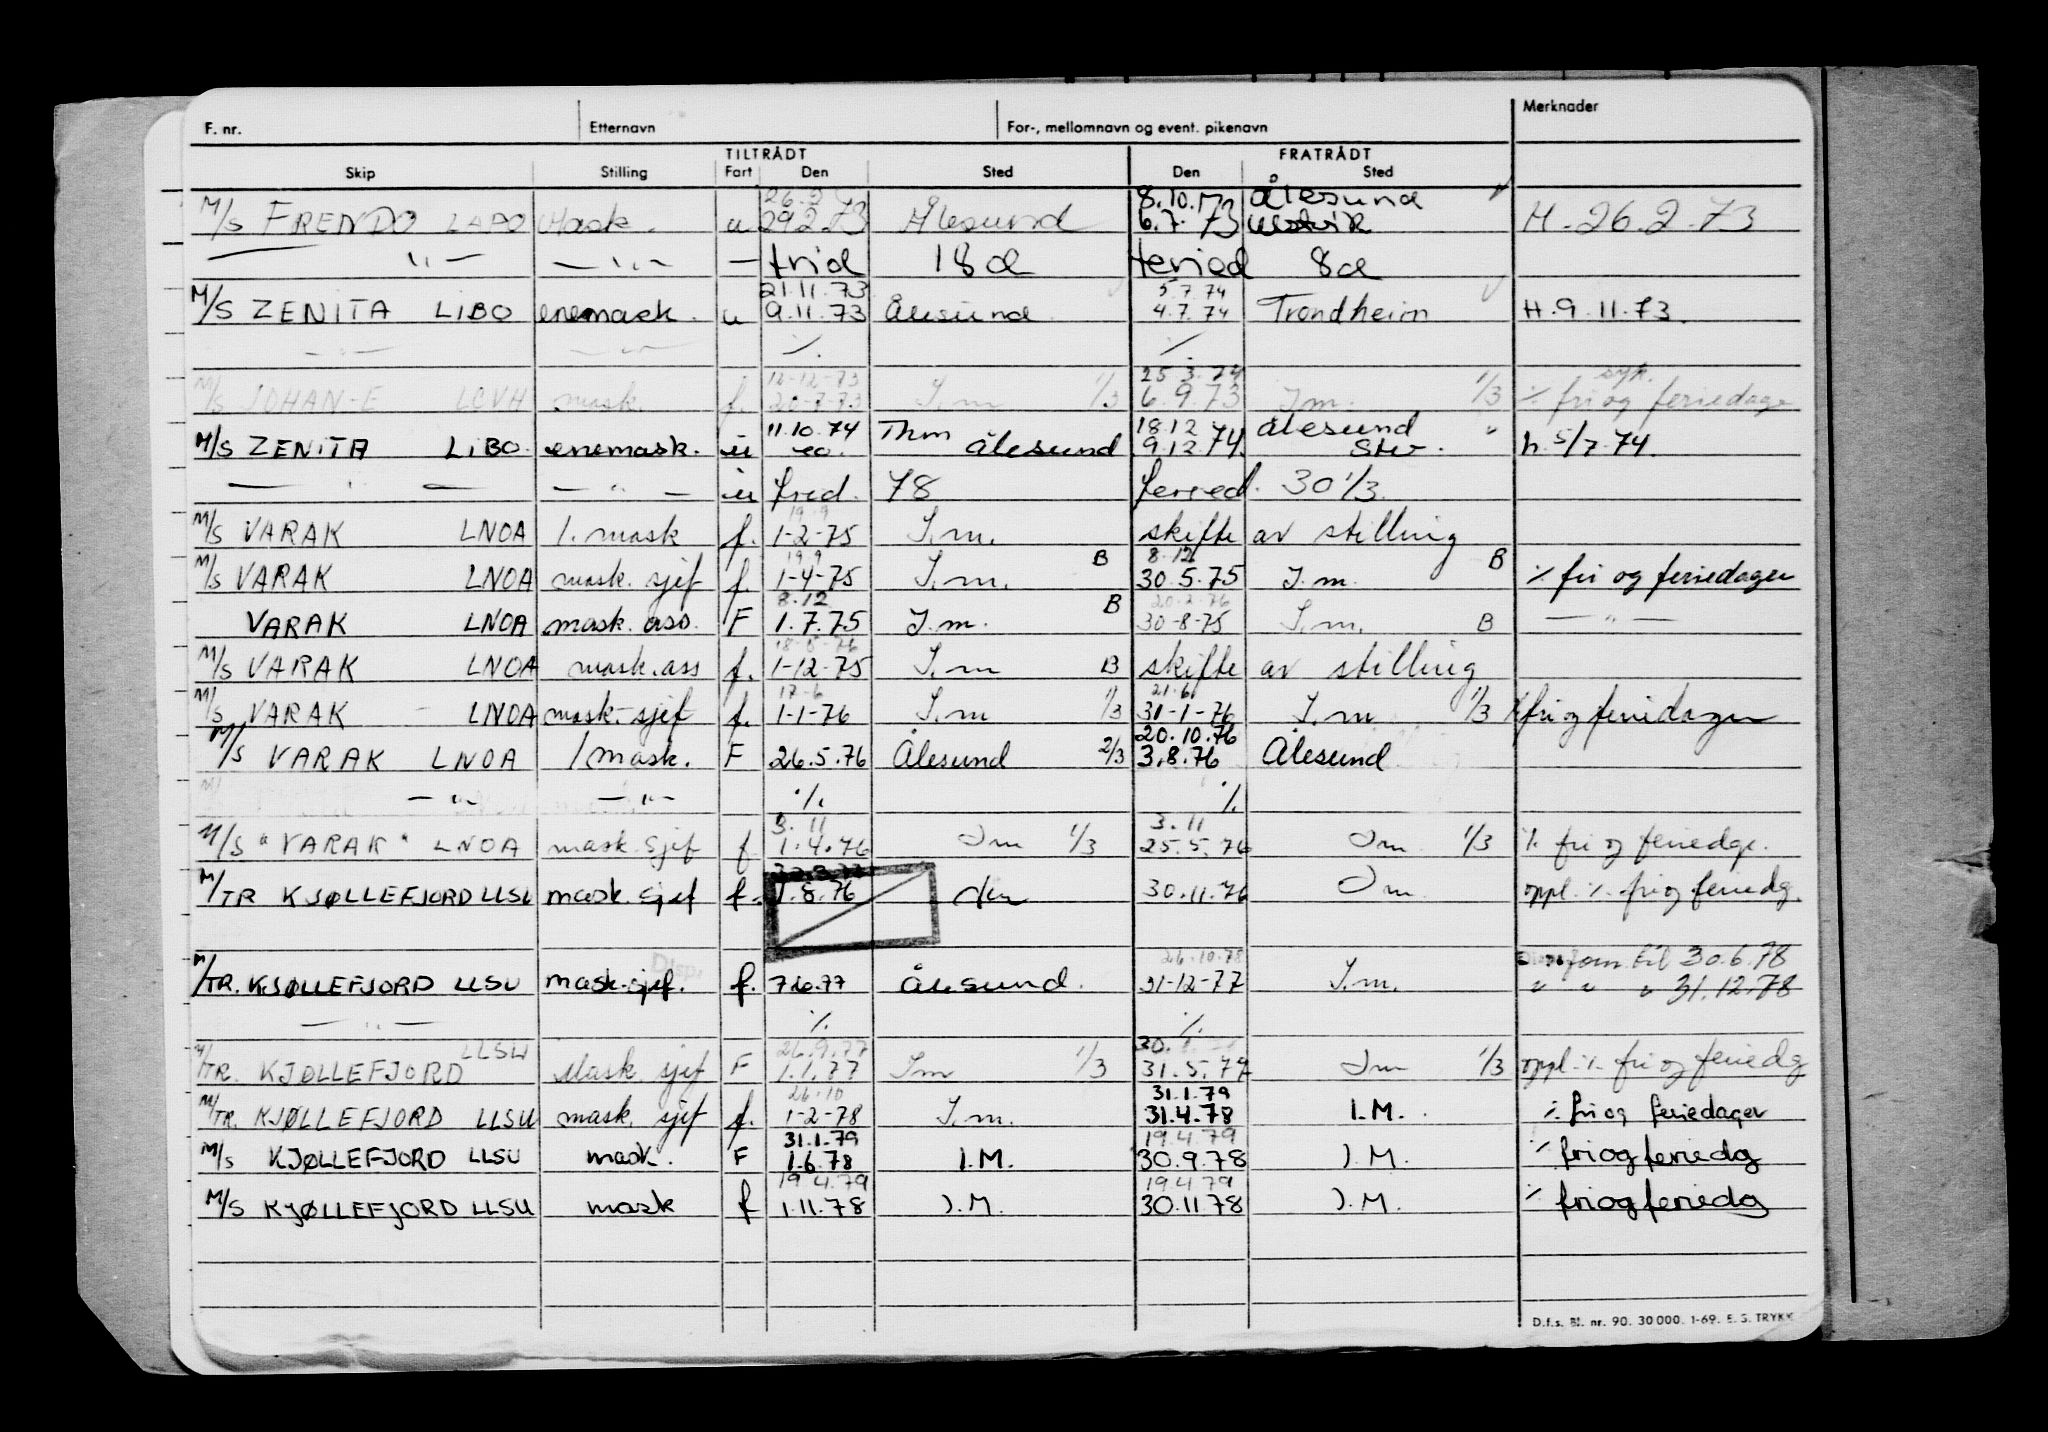 F. nr. Etternavn For-, mellomnavn og event. pikenavn Merknader
TILTRÅDT FRATRÅDT
Skip Stilling Fart Den Sted Den Sted
26.2 8.10.73 Ålesund
M/S FRENDO LAPO Mask. u 29.2.73 Ålesund 6.7.73 H. 26.2.73
— " — — " — — frid 18d feried 8d
21.11.73 5.7.74
M/S ZENITA LIBO enemask. u 9.11.73 Ålesund 4.7.74 Trondheim H. 9.11.73.
— " — — " — %. %
12-12-73 25.3.74 syk.
M/S JOHAN-E LCVH mask. f. 20-7-73 I.m 1/3 6.9.73 I.m. 1/3 % fri og feriedage
11.10.74 Thm 18.12 Ålesund "
M/S ZENITA LIBO enemask. u Ålesund 9.12.74. Stv. h. 5/7-74.
— " — — " — u frid. 78 feried. 30 1/3.
19.9
M/S VARAK LNOA 1. mask f. 1-2-75 I.m. skifte av stilling
19.9 B 8.12 B
M/S VARAK LNOA mask. sjef f. 1-4-75 I.m. 30.5.75 I.m. % fri og feriedager
8.12 B 20.2.76
VARAK LNOA mask. ass. F 1.7.75 I.m. 30-8-75 I.m. B — " —
18-5-76
M/S VARAK LNOA mask. ass f. 1-12-75 I.m B skifte av stilling
17-6 21.6
M/S VARAK LNOA mask.-sjef f. 1-1-76 I.m 1/3 31-1-76 I.m 1/3 % fri og feriedager
20.10.76
M/S VARAK LNOA 1 mask. F 26.5.76 Ålesund 2/3 3.8.76 Ålesund
— " — — " — %. %.
3.11 3.11
M/S "VARAK" LNOA mask. sjef f 1.4.76 Im 1/3 25.5.76 Im 1/3 % fri og feriedg.
M/TR KJØLLEFJORD LLSU mask. sjef f. 1.8.76 30.11.76 Im oppl. %. fri og feriedg.
Disp. 26.10.78 Disp. fom. til 30.6.78
M/TR. KJØLLEFJORD LLSU mask-sjef. f. 7.6.77 Ålesund. 31-12-77 I.m. " " " 31.12.78
— " — %. %.
LLSU 26.9.77 30.
M/TR. KJØLLEFJORD Mask. sjef F 1.1.77 Im 1/3 31.5.77 Im 1/3 oppl. %. fri og feriedg
26.10 31.1.79
M/TR. KJØLLEFJORD LLSU mask. sjef f. 1-2-78 I.m. 31.4.78 I.M. % fri og feriedager
31.1.79 19.4.79
M/S KJØLLEFJORD LLSU mask. F 1.6.78 I.M. 30.9.78 I.M. % fri og feriedg
19.4.79 19.4.79
M/S KJØLLEFJORD LLSU mask f 1.11.78 I.M. 30.11.78 I.M. % fri og feriedg
D.f.s. Bl. nr. 90. 30 000. 1-69. E. S. TRYKK